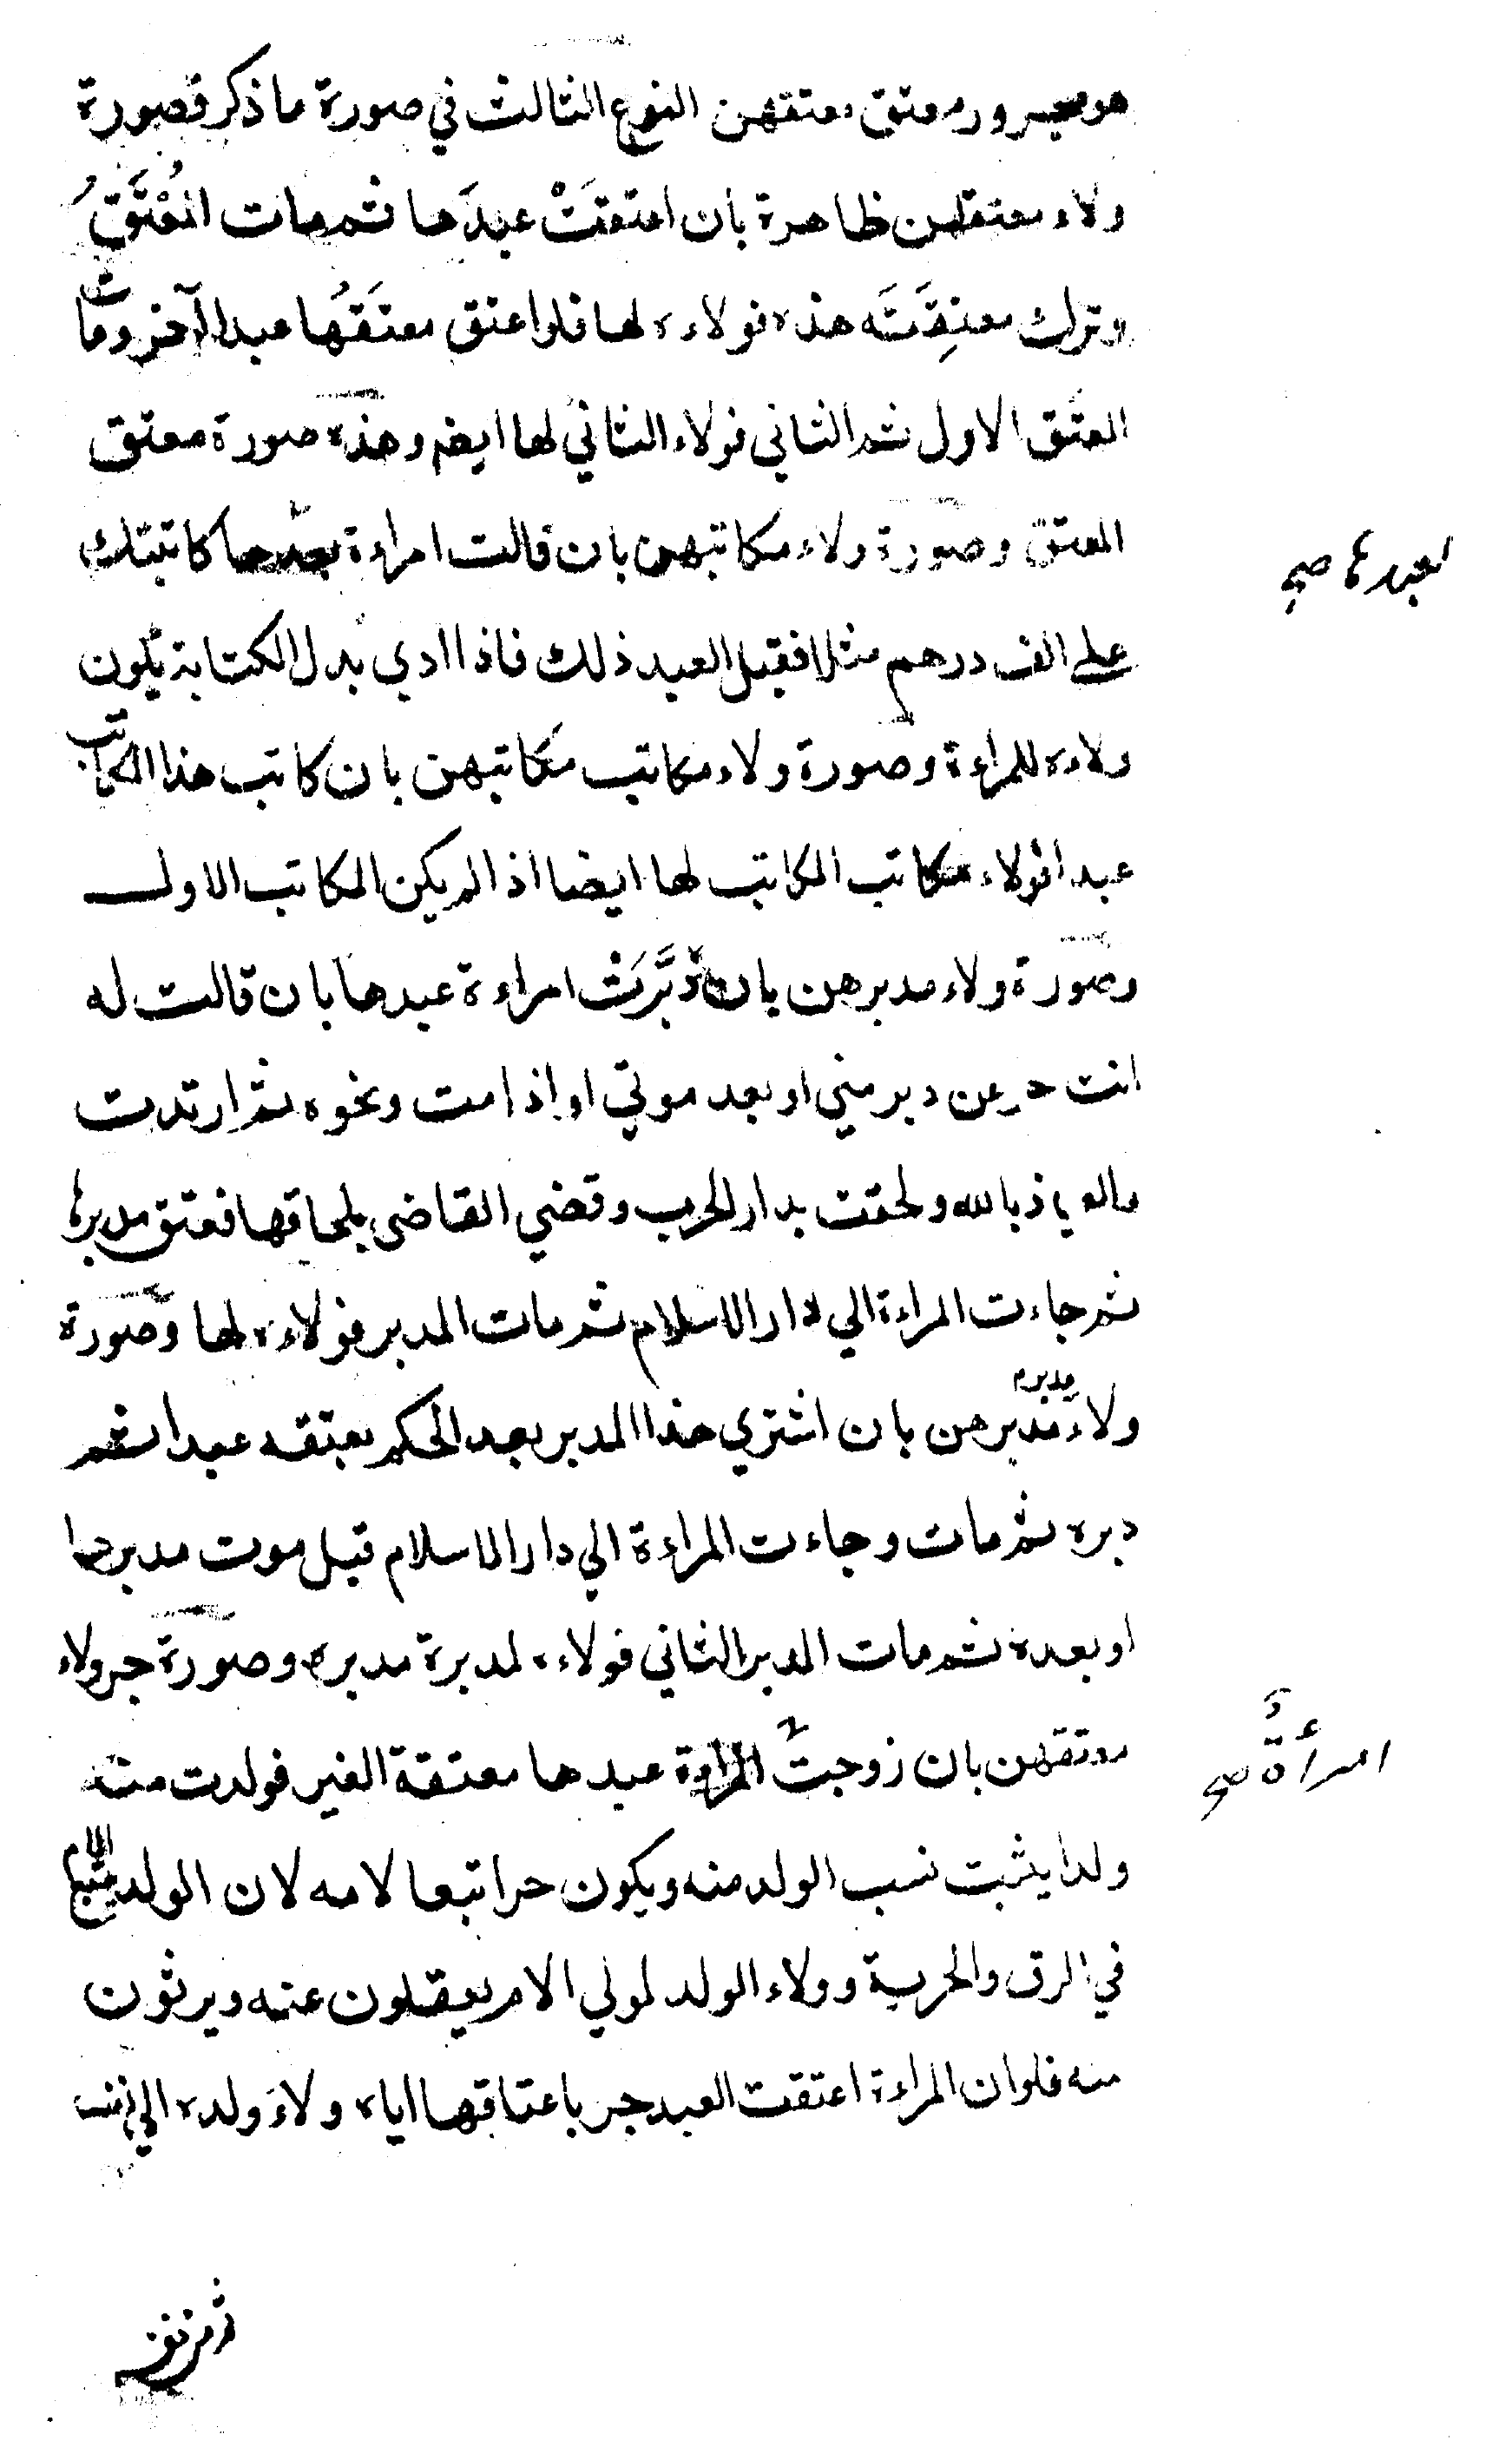 هو مجرور معتق معتقهن النوع الثالث في صورة ما ذكر فصورة
ولاء معتقهن ظاهرة بان اعتقَتْ عبدَها ثم مات المُعْتَقُ
وترك معتِقَتَه هذه فولاءه لها فلو اعتق معتَقُها عبدا آخر ومات
المعتَق الاول ثم الثاني فولاء الثاني لها ايضا وهذه صورة معتق
المعتق وصورة ولاء مكاتبهن بان قالت امراءة بعبدها كاتبتك
لعبدها صح
على الف درهم مثلا فقبل العبد ذلك فاذا ادي بدل الكتابة يكون
ولاءه للمراءة وصورة ولاء مكاتب مكاتبهن بان كاتب هذا المكاتب
عبدا فولاء مكاتب المكاتب لها ايضا اذا لم يكن المكاتب الاول
وصورة ولاء مدبرهن بان دَبَّرَتْ امراءة عبدها بان قالت له
انت حر عن دبر مني او بعد موتي او اذا مت ونحوه ثم ارتدت
والعياذ بالله ولحقت بدار الحرب وقضي القاضي بلحاقها فعتق مدبرها
ثم جاءت المراءة الي دار الاسلام ثم مات المدبر فولاءه لها وصورة
ولاء مدبر مدبرهن بان اشتري هذا المدبر بعد الحكم بعتقه عبدا ثم
دبره ثم مات وجاءت المراءة الي دار الاسلام قبل موت مدبرها
او بعده ثم مات المدبر الثاني فولاءه لمدبرة مدبره وصورة جر ولاء
معتقهن بان زوجت المراءة عبدها معتقة الغير فولدت منه
امرأةٌ صح
ولدا يثبت نسب الولد منه ويكون حرا تبعا لامه لان الولد يتبع الام
في الرق والحرية وولاء الولد لمولي الام يعقلون عنه ويرثون
منه فلو ان المراءة اعتقت العبد جر باعتاقها اياه ولاءَ ولده الي نفسه